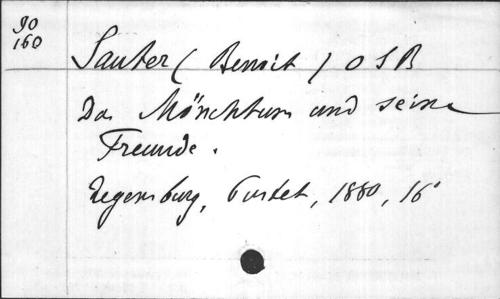 90
160
Sauter (Benoit) O S B
Das Mönchtum und seine
Freunde.
Regensburg, Pustet, 1880, 16°